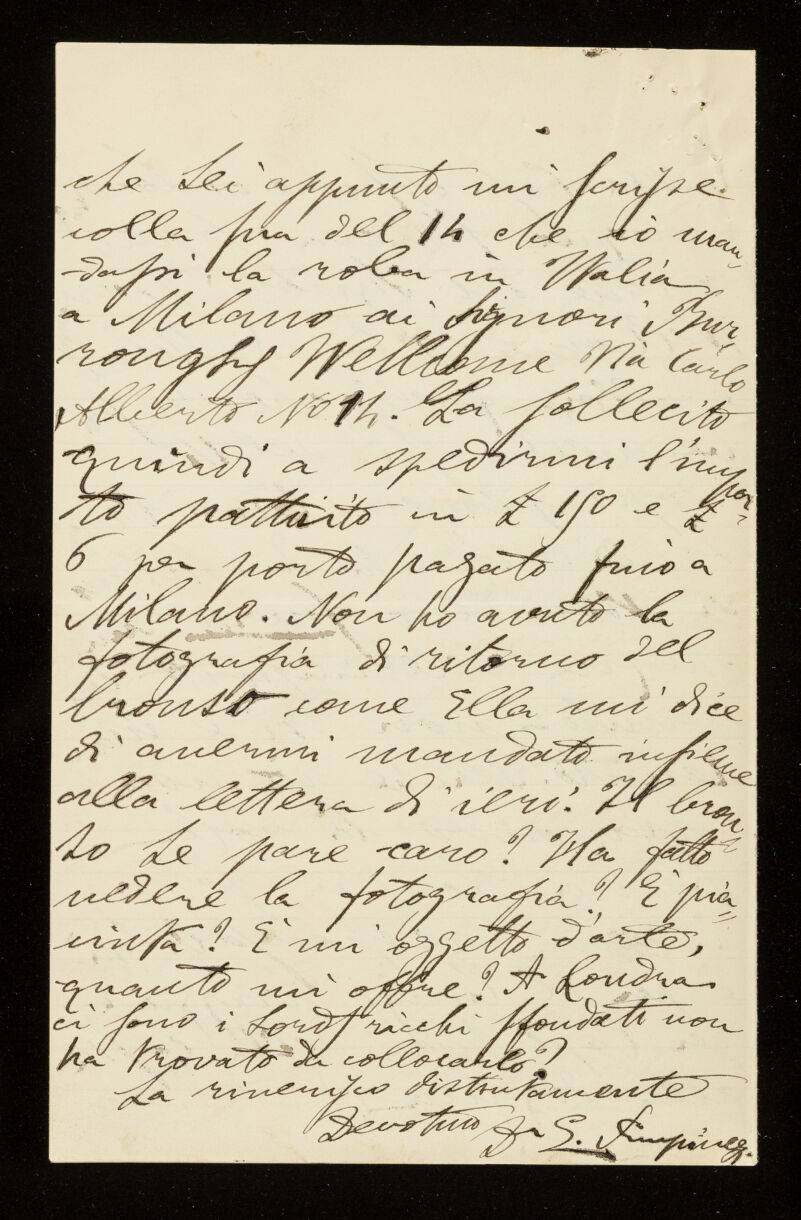 che Lei appunto mi scrisse
colla sua del 14 che io man-
dassi la roba in Italia
a Milano ai Signori Bur-
roughs Wellcome Via Carlo
Alberto No 14. La sollecito
quindi a spedirmi l'impor-
to pattuito in £ 150 e £
6 per porto pagato fino a
Milano. Non ho avuto la
fotografia di ritorno del
bronso come Ella mi dice
di avermi mandato insieme
alla lettera di ieri. Il bron-
so Le pare caro? Ha fatto
vedere la fotografia? È pia-
ciuta? È un oggetto d'arte,
quanto mi offre? A Londra
ci sono i Lords ricchi sfondati non
ha trovato da collocarlo?
La riverisco distintamente
Devotmo Dr E.